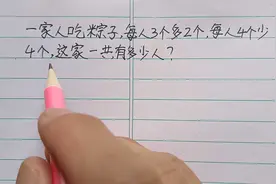 一家人吃粽子,每人3个多2个,每人4个少
4个,这家一共有多少人?